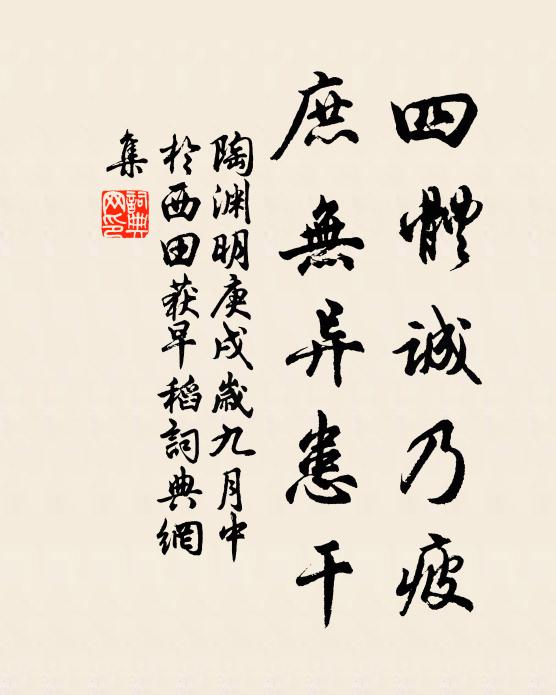 四體誠乃疲
庶無异患干
陶渊明庚戌歲九月中
於西田获早稻詞典網
集
詞典
网印